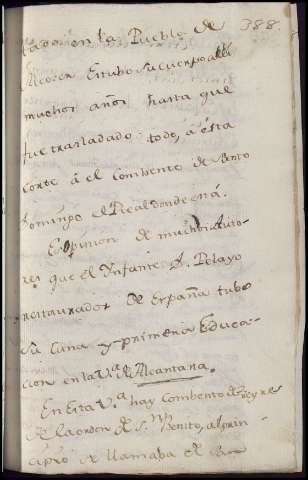 388.
en la Puebla de
Alcocer Estubo su cuerpo alli
muchos años hasta que
fue trasladado todo, a esta
Corte á el Combento de Santo
Domingo el Real donde está.
Es opinion de muchos Auto-
res que el Ynfante Dn. Pelayo
restaurador de España tubo
su Cuna y primera Educa-
cion en la Va. de Alcantara.
En Esta Va. hay Combento de
de la orden de Sn. Benito, al prin-
cipio se llamaba el